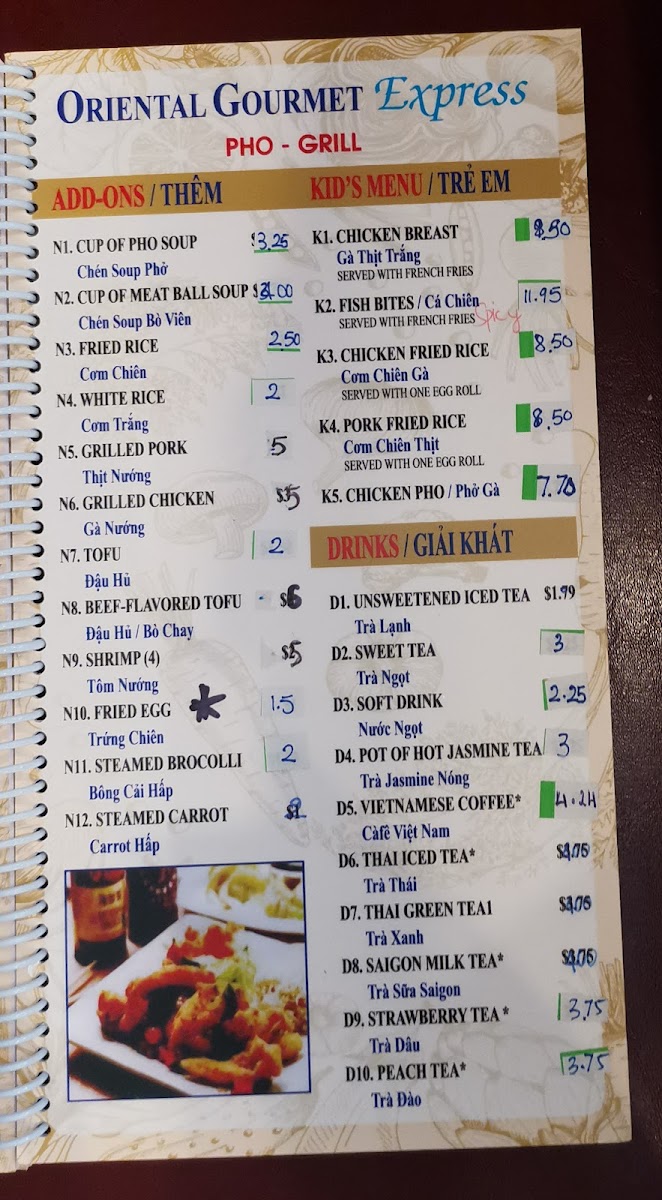 ORIENTAL GOURMET Express
PHO - GRILL
ADD-ONS / THÊM
N1. CUP OF PHO SOUP $3.25
Chén Soup Phở
N2. CUP OF MEAT BALL SOUP
Chén Soup Bò Viên
N3. FRIED RICE 2.50
Cơm Chiên
N4. WHITE RICE 2
Cơm Trắng
N5. GRILLED PORK 5
Thịt Nướng
N6. GRILLED CHICKEN $5
Gà Nướng
N7. TOFU 2
Đậu Hủ
N8. BEEF-FLAVORED TOFU $6
Đậu Hủ / Bò Chay
N9. SHRIMP (4) $5
Tôm Nướng
N10. FRIED EGG 1.5
Trứng Chiên
N11. STEAMED BROCOLLI 2
Bông Cải Hấp
N12. STEAMED CARROT
Carrot Hấp
KID'S MENU / TRẺ EM
K1. CHICKEN BREAST 8.50
Gà Thịt Trắng
SERVED WITH FRENCH FRIES
K2. FISH BITES / Cá Chiên 11.95
SERVED WITH FRENCH FRIES Spicy
K3. CHICKEN FRIED RICE 8.50
Cơm Chiên Gà
SERVED WITH ONE EGG ROLL
K4. PORK FRIED RICE 8.50
Cơm Chiên Thịt
SERVED WITH ONE EGG ROLL
K5. CHICKEN PHO / Phở Gà 7.70
DRINKS / GIẢI KHÁT
D1. UNSWEETENED ICED TEA $1.99
Trà Lạnh
D2. SWEET TEA 3
Trà Ngọt
D3. SOFT DRINK 2.25
Nước Ngọt
D4. POT OF HOT JASMINE TEA 3
Trà Jasmine Nóng
D5. VIETNAMESE COFFEE* 4.24
Càfê Việt Nam
D6. THAI ICED TEA*
Trà Thái
D7. THAI GREEN TEA1
Trà Xanh
D8. SAIGON MILK TEA*
Trà Sữa Saigon
D9. STRAWBERRY TEA * 3.75
Trà Dâu
D10. PEACH TEA* 3.75
Trà Đào